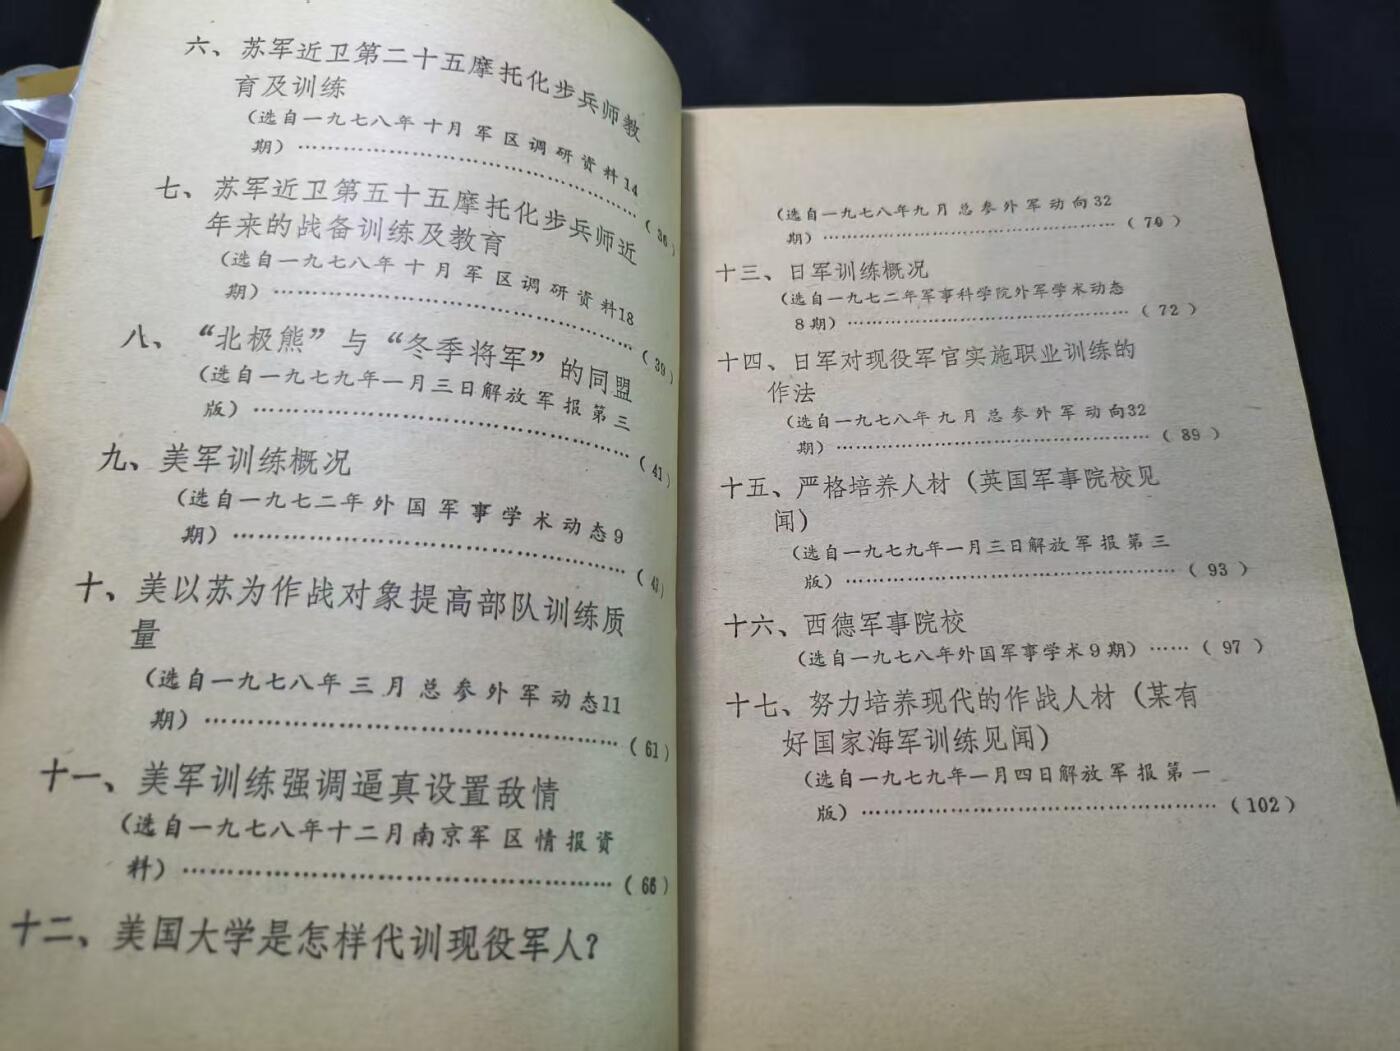 六、苏军近卫第二十五摩托化步兵师教
育及训练
(选自一九七八年十月军区调研资料14
期)………………………………(36)
七、苏军近卫第五十五摩托化步兵师近
年来的战备训练及教育
(选自一九七八年十月军区调研资料18
期)………………………………(39)
八、“北极熊”与“冬季将军”的同盟
(选自一九七九年一月三日解放军报第三
版)………………………………(41)
九、美军训练概况
(选自一九七二年外国军事学术动态9
期)………………………………(43)
十、美以苏为作战对象提高部队训练质
量
(选自一九七八年三月总参外军动态11
期)………………………………(61)
十一、美军训练强调逼真设置敌情
(选自一九七八年十二月南京军区情报资
料)………………………………(66)
十二、美国大学是怎样代训现役军人?
(选自一九七八年九月总参外军动向32
期)………………………………(70)
十三、日军训练概况
(选自一九七二年军事科学院外军学术动态
8期)………………………………(72)
十四、日军对现役军官实施职业训练的
作法
(选自一九七八年九月总参外军动向32
期)………………………………(89)
十五、严格培养人材(英国军事院校见
闻)
(选自一九七九年一月三日解放军报第三
版)………………………………(93)
十六、西德军事院校
(选自一九七八年外国军事学术9期)……(97)
十七、努力培养现代的作战人材(某有
好国家海军训练见闻)
(选自一九七九年一月四日解放军报第一
版)………………………………(102)